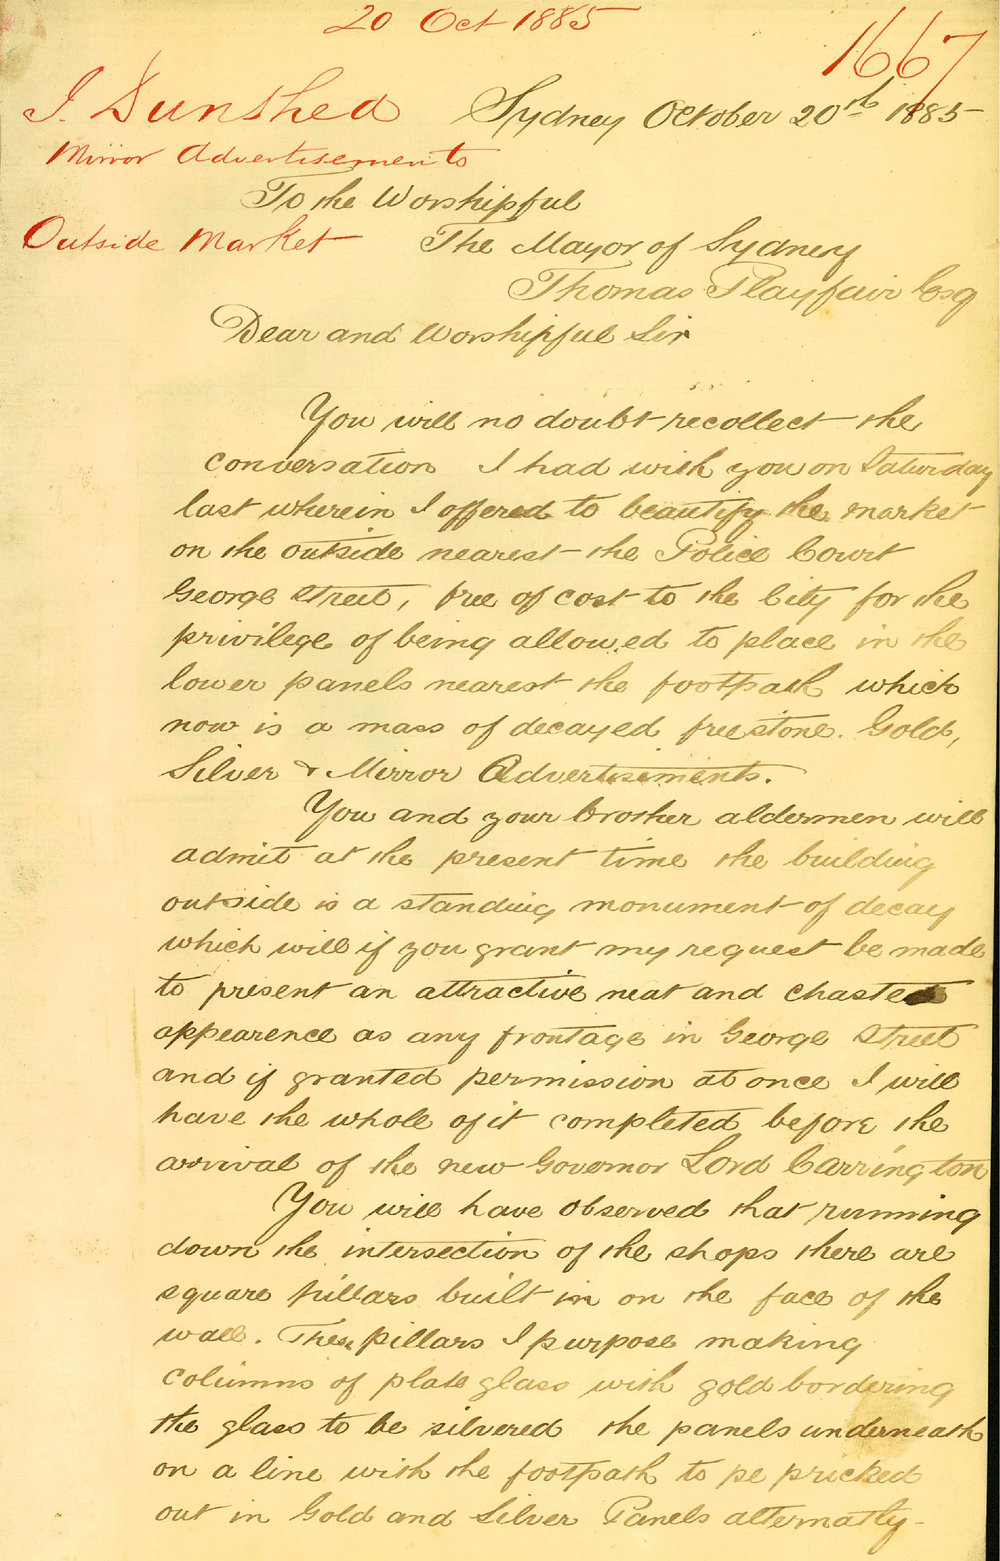 20 Oct 1885
1667
J. Dunshea
Sydney October 20th 1885
Mirror Advertisements
To the Worshipful
Outside Market
The Mayor of Sydney
Thomas Playfair Esq
Dear and Worshipful Sir
You will no doubt recollect the
conversation I had with you on Saturday
last wherein I offered to beautify the market
on the outside nearest the Police Court
George Street, free of cost to the City for the
privilege of being allowed to place in the
lower panels nearest the footpath which
now is a mass of decayed freestone. Gold,
Silver & Mirror Advertisements.
You and your brother aldermen will
admit at the present time the building
outside is a standing monument of decay
which will if you grant my request be made
to present an attractive neat and chaste
appearence as any frontage in George Street
and if granted permission at once I will
have the whole of it completed before the
arrival of the new Governor Lord Carrington
You will have observed that running
down the intersection of the shops there are
square pillars built in on the face of the
wall. These pillars I purpose making
columns of plate glass with gold bordering
the glass to be silvered the panels underneath
on a line with the footpath to pe pricked
out in Gold and Silver Panels alternatly-